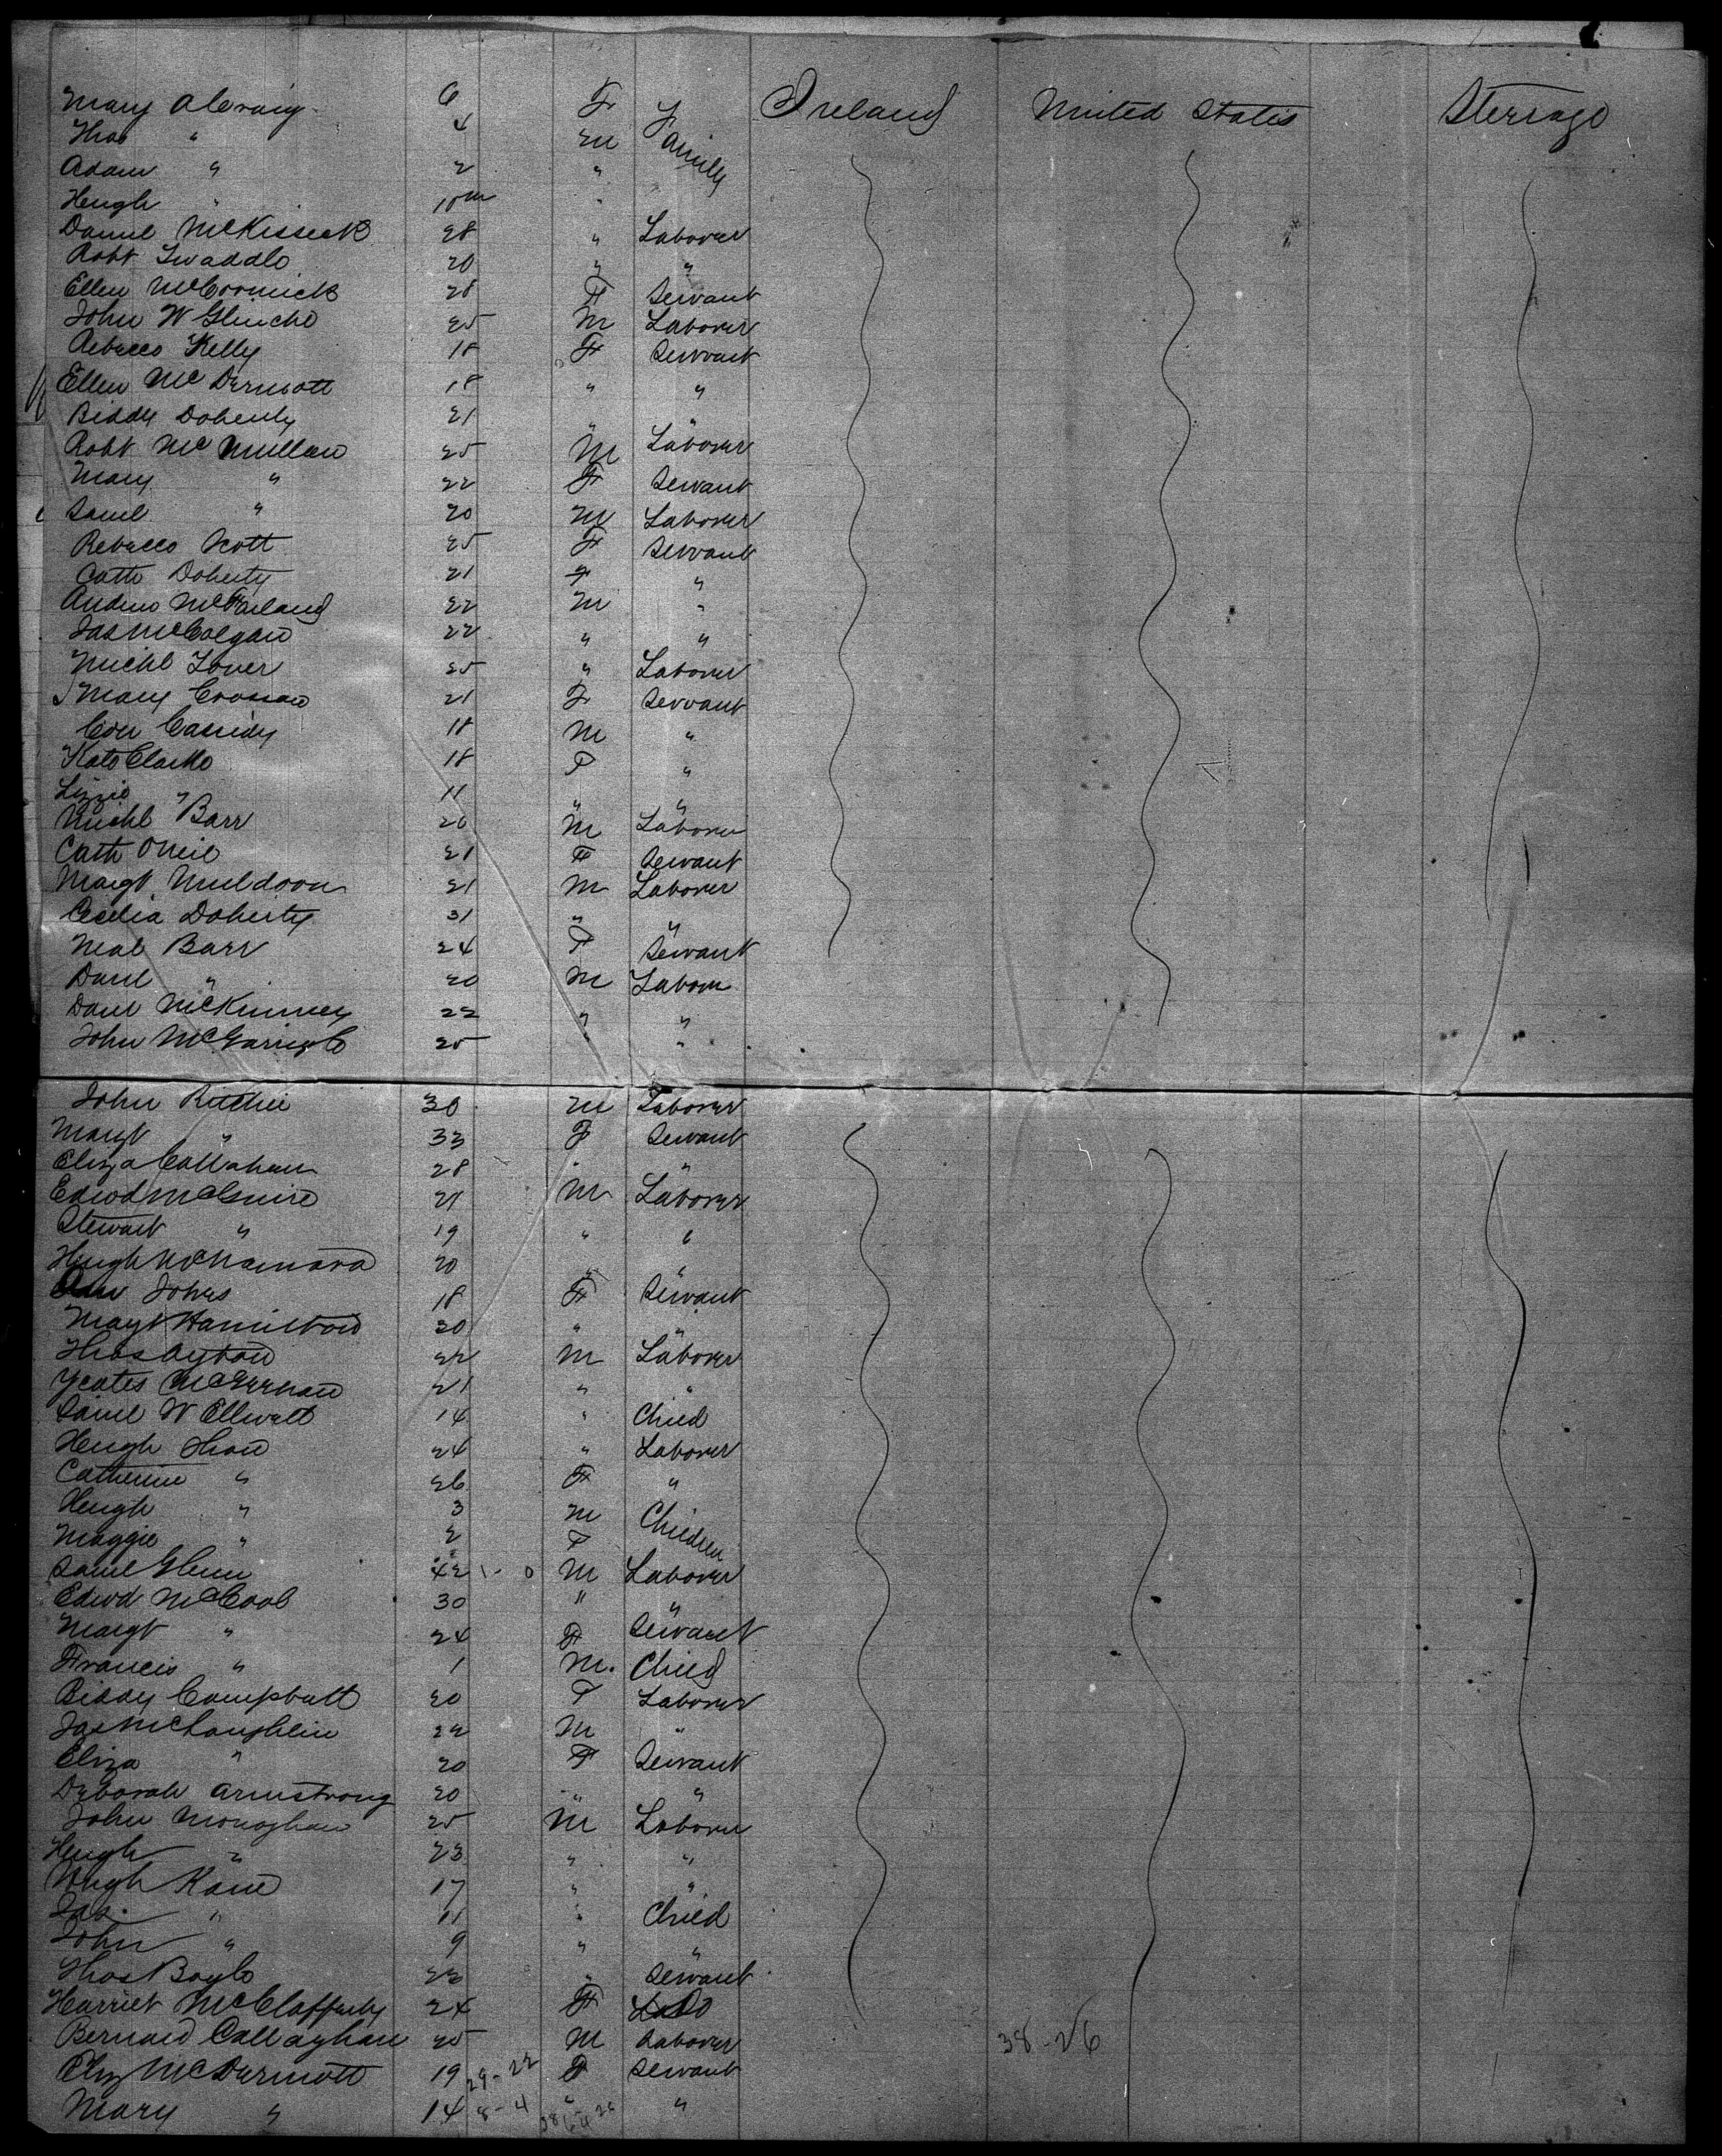 Mary A Craig 6 F Family Ireland United States Steerage
Thos " 4 M
Adam " 2 "
Hugh " 10m "
Daniel McKissick 28 " Laborer
Robt Twaddle 20 " "
Ellen McCormick 28 F Servant
John W Glinche 25 M Laborer
Rebecca Kelly 18 F Servant
Ellen McDermott 18 " "
Biddy Doherty 21 " "
Robt McMullan 25 M Laborer
Mary " 22 F Servant
Saml " 20 M Laborer
Rebecca Scott 25 F Servant
Cath Doherty 21 F "
Andrew McFarland 22 M "
Jas McColgan 22 " "
Michl Toner 25 " Laborer
Mary Crossan 21 F Servant
Cassidy 18 M "
Kate Clarke 18 F "
Lizzie " 11 " "
Michl Barr 20 M Laborer
Cath ONeil 21 F Servant
Margt Muldoon 21 M Laborer
Cecilia Doherty 31 " "
Neal Barr 24 F Servant
Danl " 20 M Laborer
Danl McKinney 22 " "
John McGarrigle 25 " "
John Ritchie 30 M Laborer
Margt " 33 F Servant
Eliza Callahan 28 " "
Edwd McGuire 21 M Laborer
Stewart " 19 " "
Hugh McNamara 20 "
Johns 18 F Servant
Margt Hamilton 30 " "
Thos Ayton 22 M Laborer
Yeates McKernan 21 " "
Saml W Ellwatt 14 " Child
Hugh 24 " Laborer
Catherine " 26 F "
Hugh " 3 M Children
Maggie " 2 F
Saml Glenn 42 M Laborer
Edwd McCool 30 " "
Margt " 24 F Servant
Francis " 1 M. Child
Biddy Campbell 20 F Laborer
Jas McLaughlin 22 M "
Eliza " 20 F Servant
Deborah Armstrong 20 " "
John Monaghan 25 M Laborer
Hugh " 23 " "
Hugh Kane 17 " "
Jas. " 11 " Child
John " 9 " "
Thos Boyle 22 " Servant
Harriet McClafferty 24 F
Bernard Callaghan 25 M Laborer 38-26
Eliz McDermott 19 29-22 F Servant
Mary " 14 8-4 " "